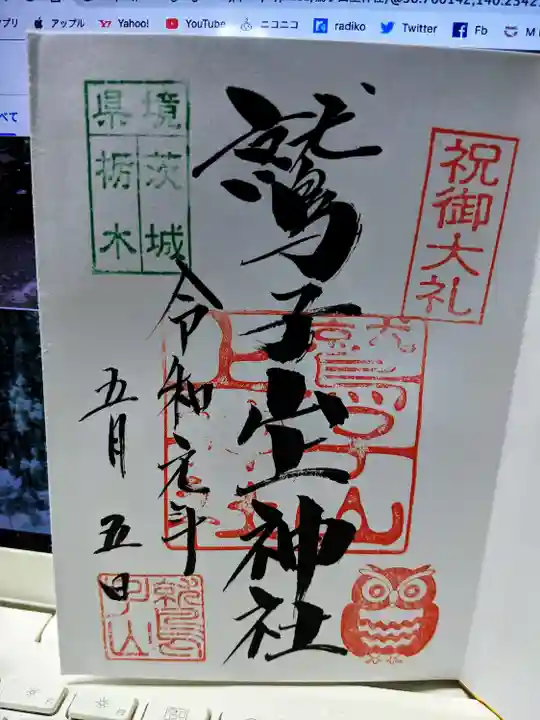 アップル Yahoo! YouTube ニコニコ radiko Twitter Fb
祝御大礼
鷲子山上神社
境 茨城
県 栃木
令和元年
五月 五日